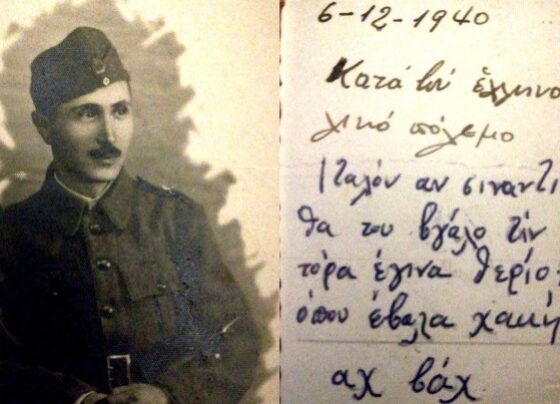 6-12-1940
Κατά τον ἑλληνο
λικό πόλεμο
Ιταλόν αν σιναντι
θα του βγάλο τιν
τόρα έγινα θερίο
όπου έβαλα χακή
αχ βάχ